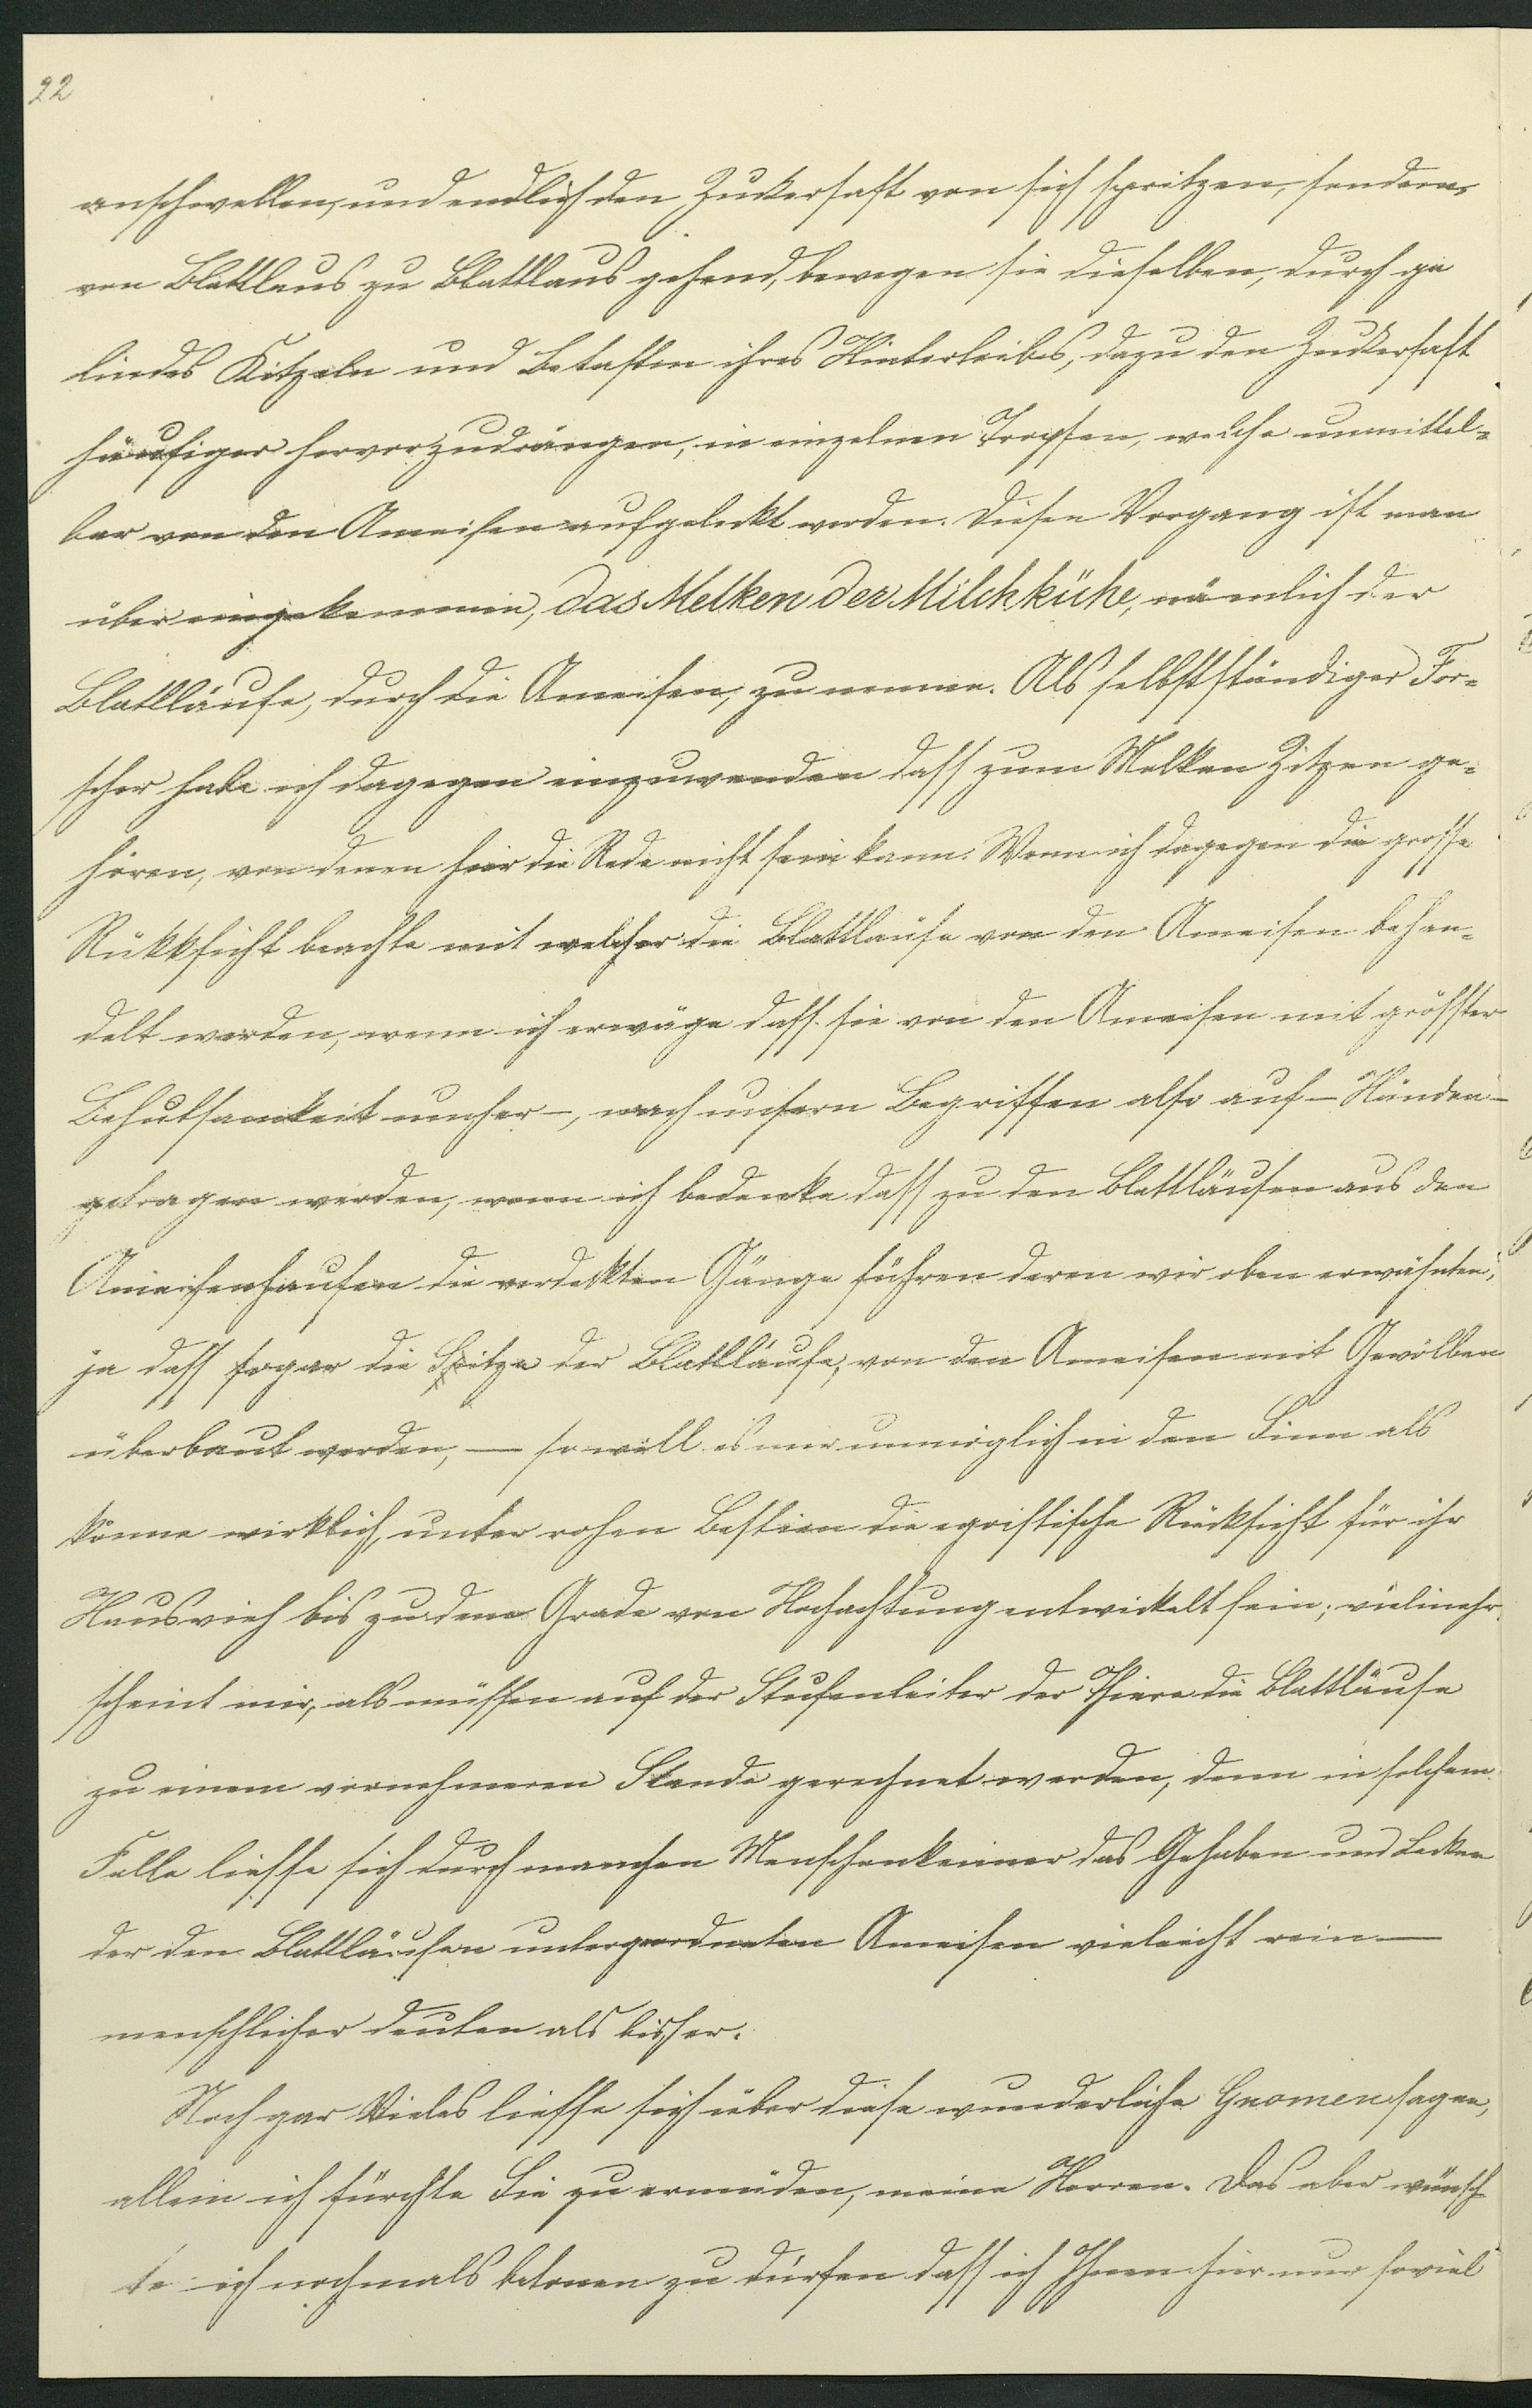 22
anschwellen, und endlich den Zuckersaft von sich spritzen, sondern,
von Blattlaus zu Blattlaus gehend, bewegen sie dieselben, durch ge
lindes Kitzeln und Betasten ihres Hinterleibes, dazu den Zuckersaft
häufiger hervorzudrängen, in einzelnen Tropfen, welche unmittel-
bar von den Ameisen aufgeleckt werden. Diesen Vorgang ist man
übereingekommen, das Melken der Milchkühe, nämlich der
Blattläuse, durch die Ameisen, zu nennen. Als selbstständiger For-
scher habe ich dagegen einzuwenden dass zum Melken Zitzen ge-
hören, von denen hier die Rede nicht sein kann. Wenn ich dagegen die grosse
Rükksicht beachte mit welcher die Blattläuse von den Ameisen behan-
delt werden, wenn ich erwäge dass sie von den Ameisen mit grösster
Behutsamkeit umher-, nach unsern Begriffen also auf - Händen -
getragen werden, wenn ich bedenke dass zu den Blattläusen aus den
Ameisenhaufen die verdeckten Gänge führen deren wir oben erwähnten,
ja dass sogar die Sitze der Blattläuse, von den Ameisen mit Gewölben
überbaut werden, — so will es mir unmöglich in den Sinn als
könne wirklich, unter rohen Bestien die egoistische Rücksicht für ihr
Hausvieh bis zu dem Grade von Hochachtung entwickelt sein; vielmehr
scheint mir, als müssen auf der Stufenleiter der Thiere die Blattläuse
zu einem vornehmeren Stande gerechnet werden, denn in solchem
Falle liesse sich durch manchen Menschenkenner das Gehaben und Lecken
der den Blattläusen untergeordneten Ameisen vieleicht rein —
menschlicher deuten als bisher.
Noch gar Vieles liesse sich über diese wunderliche Gnomen sagen,
allein ich fürchte Sie zu ermüden, meine Herren. Das aber wünsch
te ich nochmals betonen zu dürfen dass ich Ihnen hier nur soviel